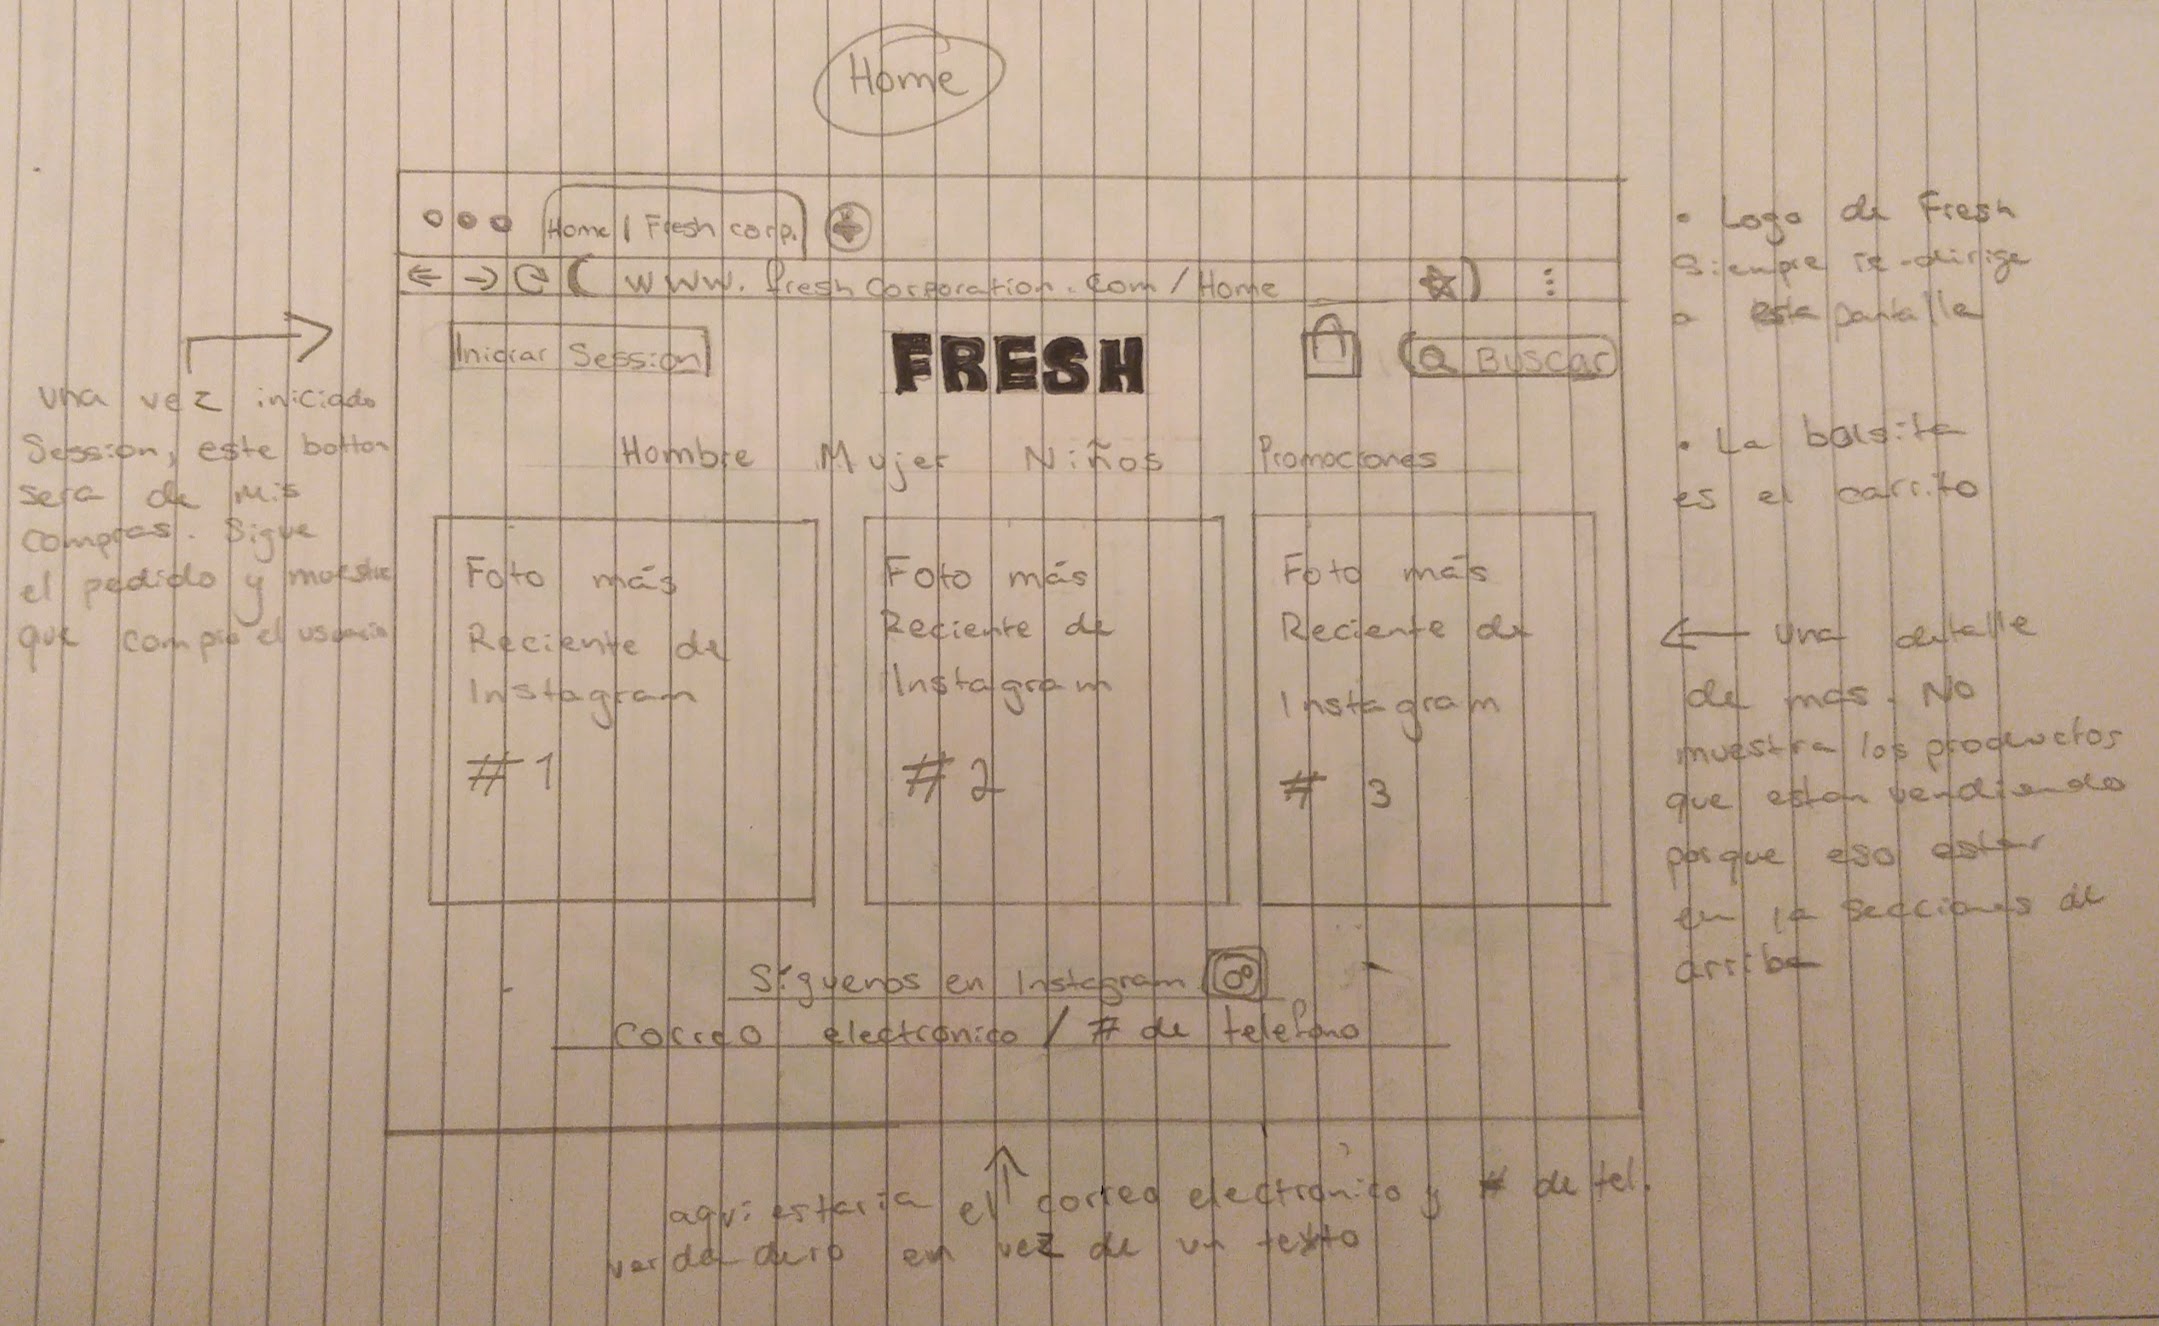 Home
Home | Fresh corp.
www.freshcorporation.com/Home
Iniciar Session
FRESH
Buscar
Hombre Mujer Niños Promociones
Foto más
Reciente de
Instagram
#1
Foto más
Reciente de
Instagram
#2
Foto más
Reciente de
Instagram
# 3
Síguenos en Instagram
correo electronico / # de telefono
una vez iniciado
Session, este botton
sera de mis
compras. Sigue
el pedido y muestra
que compro el usuario
• Logo de Fresh
Siempre re-dirige
a esta pantalla
• La bolsita
es el carrito
una detalle
de mas. No
muestra los productos
que estan vendiendo
porque eso estar
en la secciones de
arriba
aqui estaria el correo electronico y # de tel.
verdadero en vez de un texto